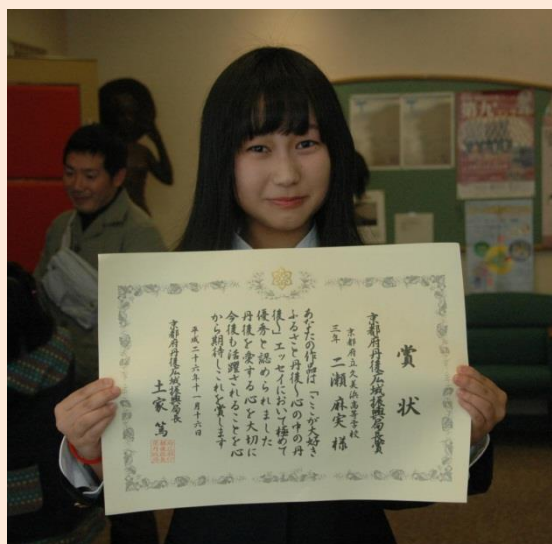 賞状
京都府丹後広域振興局長賞
京都府立久美浜高等学校
三年 二瀬 麻実 様
あなたの作品は「ここが大好き
ふるさと丹後〜心の中の丹
後〜」エッセイにおいて極めて
優秀と認められました
丹後を愛する心を大切に
今後も活躍されることを心
から期待しこれを賞します
平成二十六年十一月十六日
京都府丹後広域振興局長
土家 篤